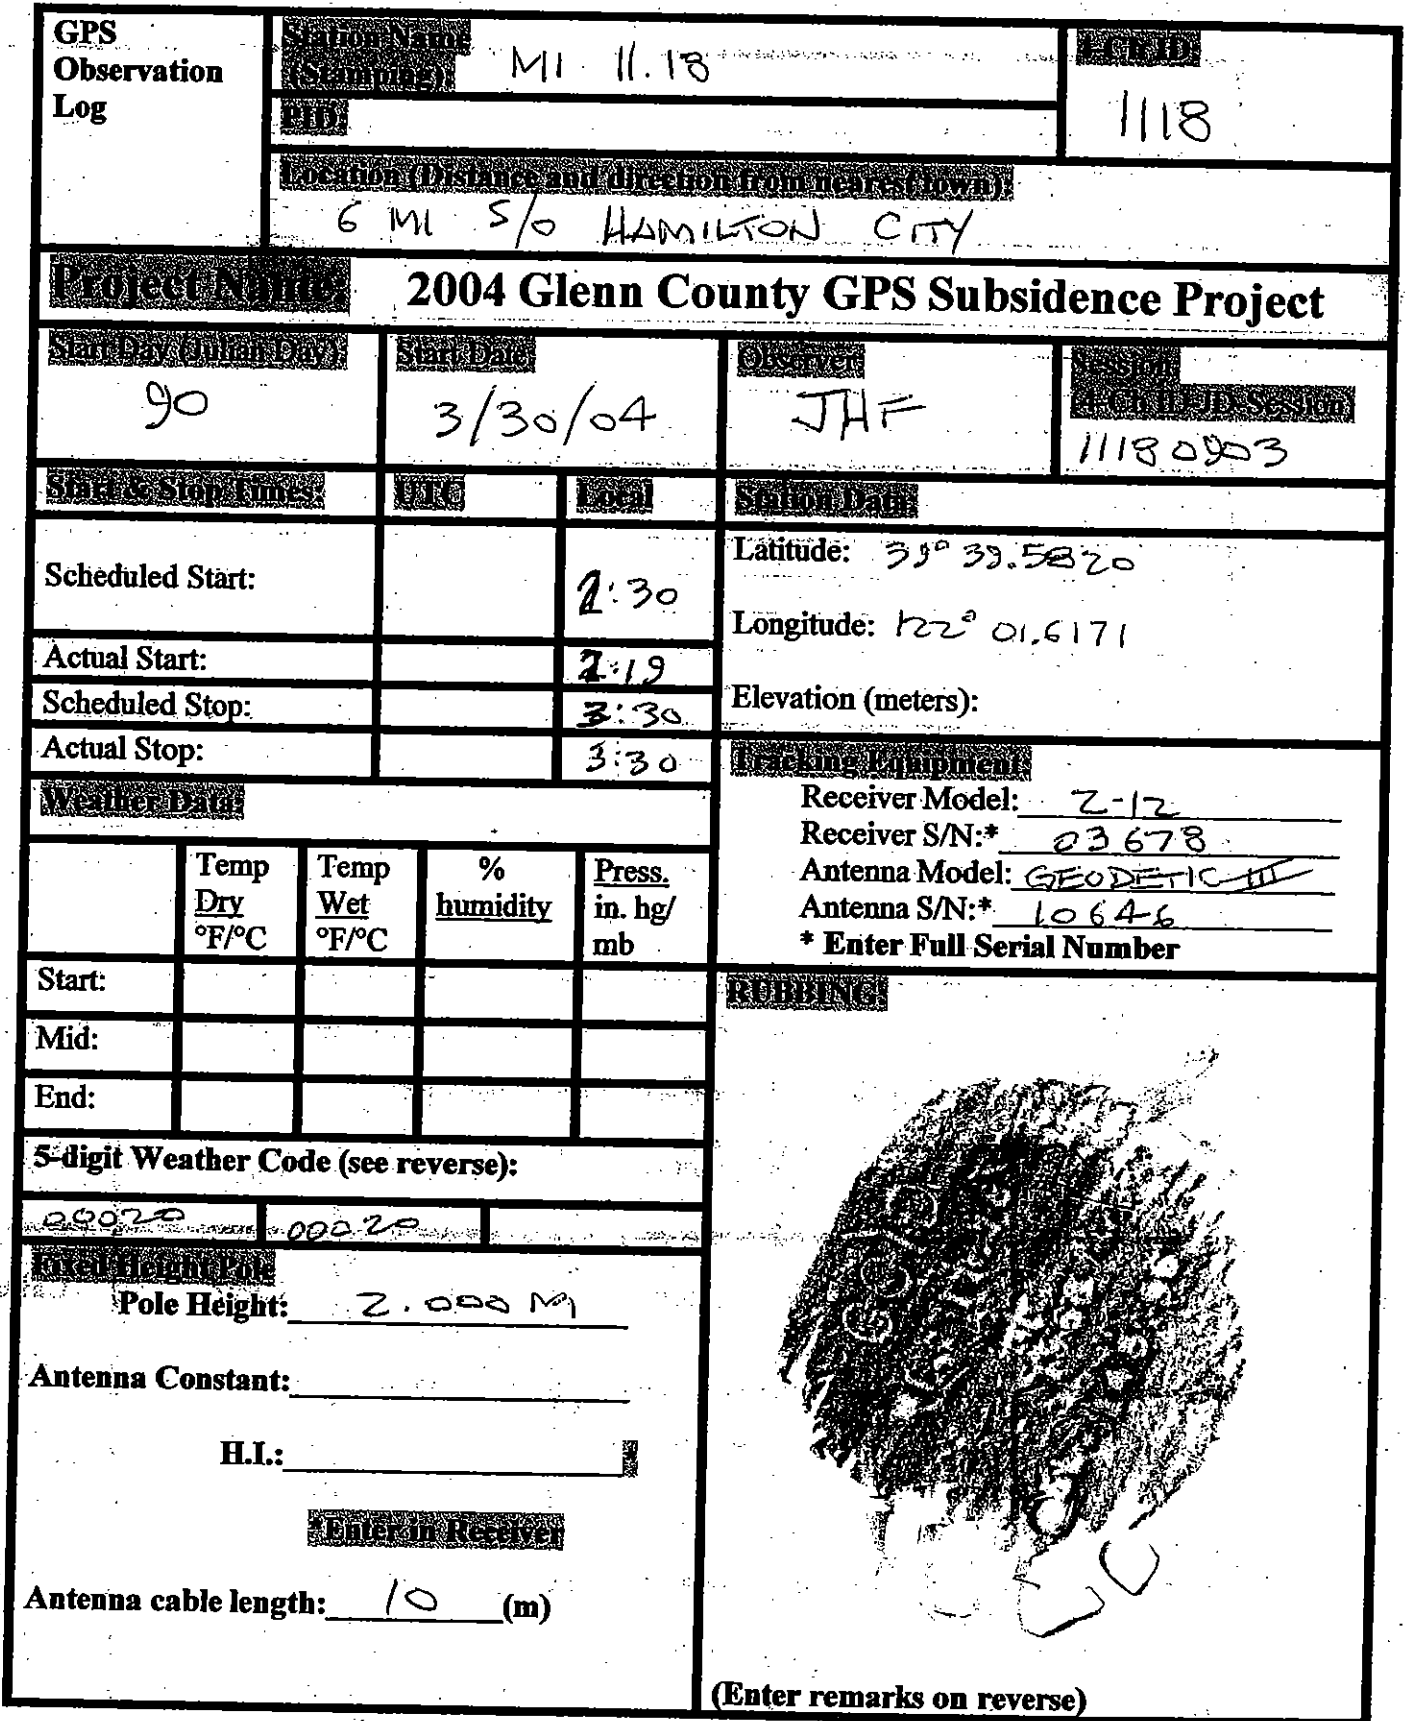 GPS
Observation
Log
Station Name
(Stamping): MI 11.18
4-Ch ID:
1118
PID:
Location (Distance and direction from nearest town):
6 MI S/O HAMILTON CITY
Project Name: 2004 Glenn County GPS Subsidence Project
Start Day (Julian Day): Start Date: Observer: Session:
(4-Ch ID-JD-Session)
90 3/30/04 JHF 11180903
Start & Stop Times: UTC Local Station Data:
Scheduled Start: 2:30
Latitude: 39° 39.5820
Longitude: 122° 01.6171
Actual Start: 2:19
Scheduled Stop: 3:30
Elevation (meters):
Actual Stop: 3:30
Tracking Equipment:
Receiver Model: Z-12
Receiver S/N:* 03678
Antenna Model: GEODETIC III
Antenna S/N:* 10646
* Enter Full Serial Number
Weather Data:
Temp Temp % Press.
Dry Wet humidity in. hg/
°F/°C °F/°C mb
Start:
Mid:
End:
5-digit Weather Code (see reverse):
00020 00020
Fixed Height Pole
Pole Height: 2.000 M
Antenna Constant:
H.I.: *
*Enter in Receiver
Antenna cable length: 10 (m)
RUBBING:
(Enter remarks on reverse)